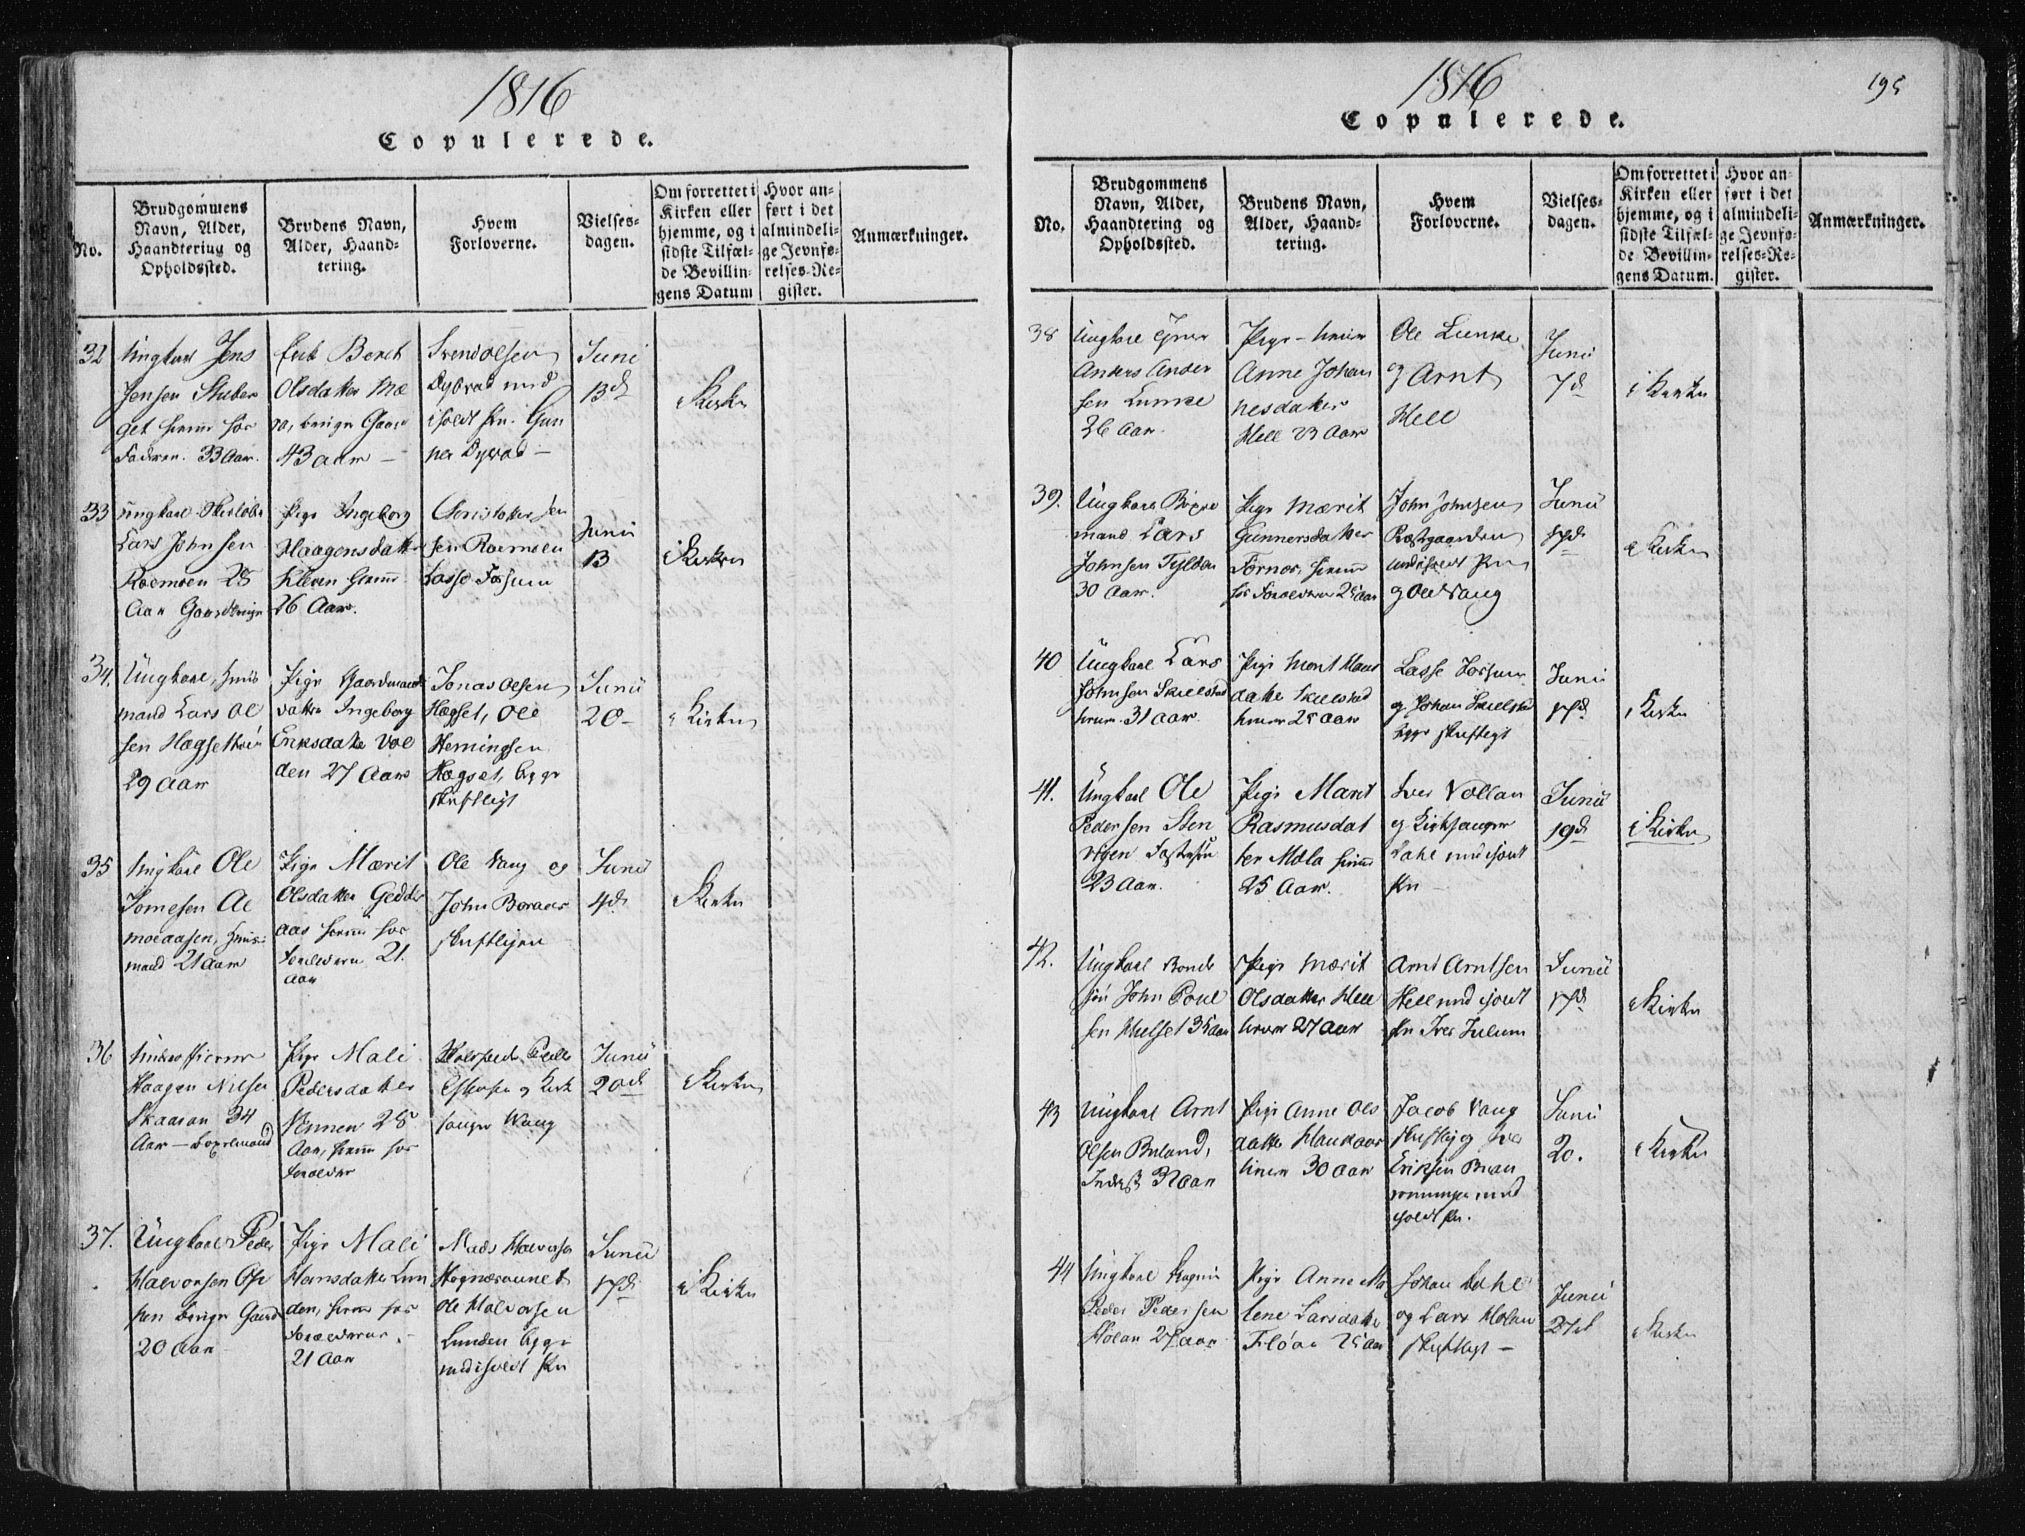 1816
Copulerede.
No.
Brudgommens
Navn, Alder,
Haandtering og
Opholdssted.
Brudens Navn,
Alder, Haand-
tering.
Hvem
Forloverne.
Vielses-
dagen.
Om forrettet i
Kirken eller
hjemme, og i
sidste Tilfæl-
de Bevillin-
gens Datum
Hvor an-
ført i det
almindeli-
ge Jevnfø-
relses-Re-
gister.
Anmærkninger.
32
Ungkarl Jens
Jensen
get for
Faderen. 33 Aar.
Enk Beret
Olsdatter
43 aar
Svend Olsen
Dyevad med
iholdt Pen. Gun
Junii
13d
i Kirken
33
Ungkarl
Lars Johnsen
Roemoen 25
Aar
Pige Ingeborg
Haagensdatter
Kleven
26 Aar.
Christopher Jen
sen Roemoen
Lasse Forsum
Junii
13
i Kirken
34.
Ungkarl, Huus
mand Lars Ol
sen
29 Aar
Pige Gaardmands
datter Ingeborg
Eriksdatter Vol
den 27 Aar
Jonas Olsen
Hægset, Ole
Hemingsen
Hægset, begge
skriftligt
Junii
20
i Kirken
35
Ungkarl Ole
Tomesen Al
moeaasen, Huus
mand 21 aar
Pige Mærit
Olsdatter Gedder
aas hiemme hos
Forældrene 21.
Aar
Ole Vang og
John Boraas
skriftligen
Junii
4d
i Kirken
36
Haagen Nilsen
Skaaran 34
Aar
Pige Mali
Pedersdatter
Vennen 28
Aar, hiemme hos
Forælder
Peder
og Kirk
sanger Wang
Junii
20d
i Kirken
37.
Ungkarl Peder
Halvorsen Op
hen Gaard
20 Aar
Pige Mali
Hansdatter Lun
den, hiemme hos
Forældrene
21 Aar
Mads Halvorsen
Ole Halvorsen
Lunden begge
med iholdt Pen
Junii
17d
i Kirken
1816
195
Copulerede.
No.
Brudgommens
Navn, Alder,
Haandtering og
Opholdssted.
Brudens Navn,
Alder, Haand-
tering.
Hvem
Forloverne.
Vielses-
dagen.
Om forrettet i
Kirken eller
hjemme, og i
sidste Tilfæl-
de Bevillin-
gens Datum.
Hvor an-
ført i det
almindeli-
ge Jevnfø-
relses-Re-
gister.
Anmærkninger.
38
Ungkarl
Anders Ander
sen Lunke
26 Aar
Pige
Anne Johan
nesdatter
Hell 23 Aar
Ole Lunke
og Arnt
Hell
Junii
7d
i Kirken
39.
Ungkarl Bøxe
mand Lars
Johnsen Tylden
30 Aar.
Pige Mærit
Gunnersdatter
Fornes, hiemme
hos Forældrene 25 Aar
John Johnsen
Præstgaarden
med iholdt Pen
og Ole Vang
Junii
17d
i Kirken
40
Ungkarl Lars
Johnsen Skielstad
31 Aar.
Pige Merit Hans
datter Skielstad
25 Aar
Lasse Forsum
og Johan Skielstad
begge skriftligt
Junii
17d
i Kirken
41.
Ungkarl Ole
Pedersen Sten
vigen
23 Aar.
Pige Marit
Rasmusdat
ter Mæla hiemme
25 Aar.
Iver Vollan
og Kirksanger
Dahl med iholdt
Pen
Junii
19d
i Kirken
42.
Ungkarl Bonde
søn John Poul
sen Hulset 35 Aar
Pige Mærit
Olsdatter Hell
27 Aar
Arnt Arntsen
Hell med iholdt
Pen Iver Julum
Junii
17d
i Kirken
43
Ungkarl Arnt
Olsen Buland,
Inderst 32 Aar
Pige Anne Ols
datter
30 Aar
Jacob Vang
skriftlig og Iver
Eriksen
med
iholdt Pen.
Junii
20.
i Kirken
44
Ungkarl
Peder Pedersen
Holan 27 aar
Pige Anne Ma
lene Larsdatter
Floan 25 Aar
Johan Dahl
og Lars Holan
skriftligt
Junii
27d
i Kirken